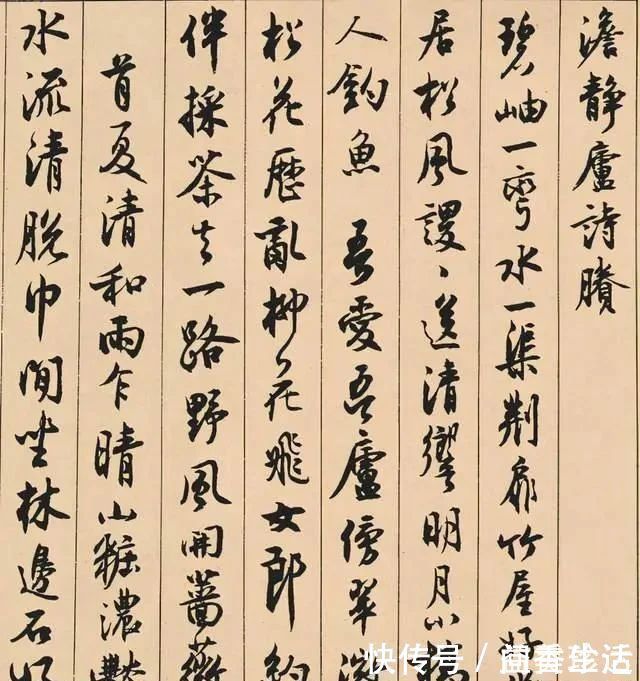 澹靜廬詩賸
碧岫一彎水一渠荆扉竹屋好
居松風謖〻送清響明月小橋
人釣魚 吾愛吾廬傍翠微
松花歷亂柳花飛女郎約
伴採茶去一路野風開薔薇
首夏清和雨乍晴山糚濃
水流清脫巾閒坐林邊石好
快传号 /